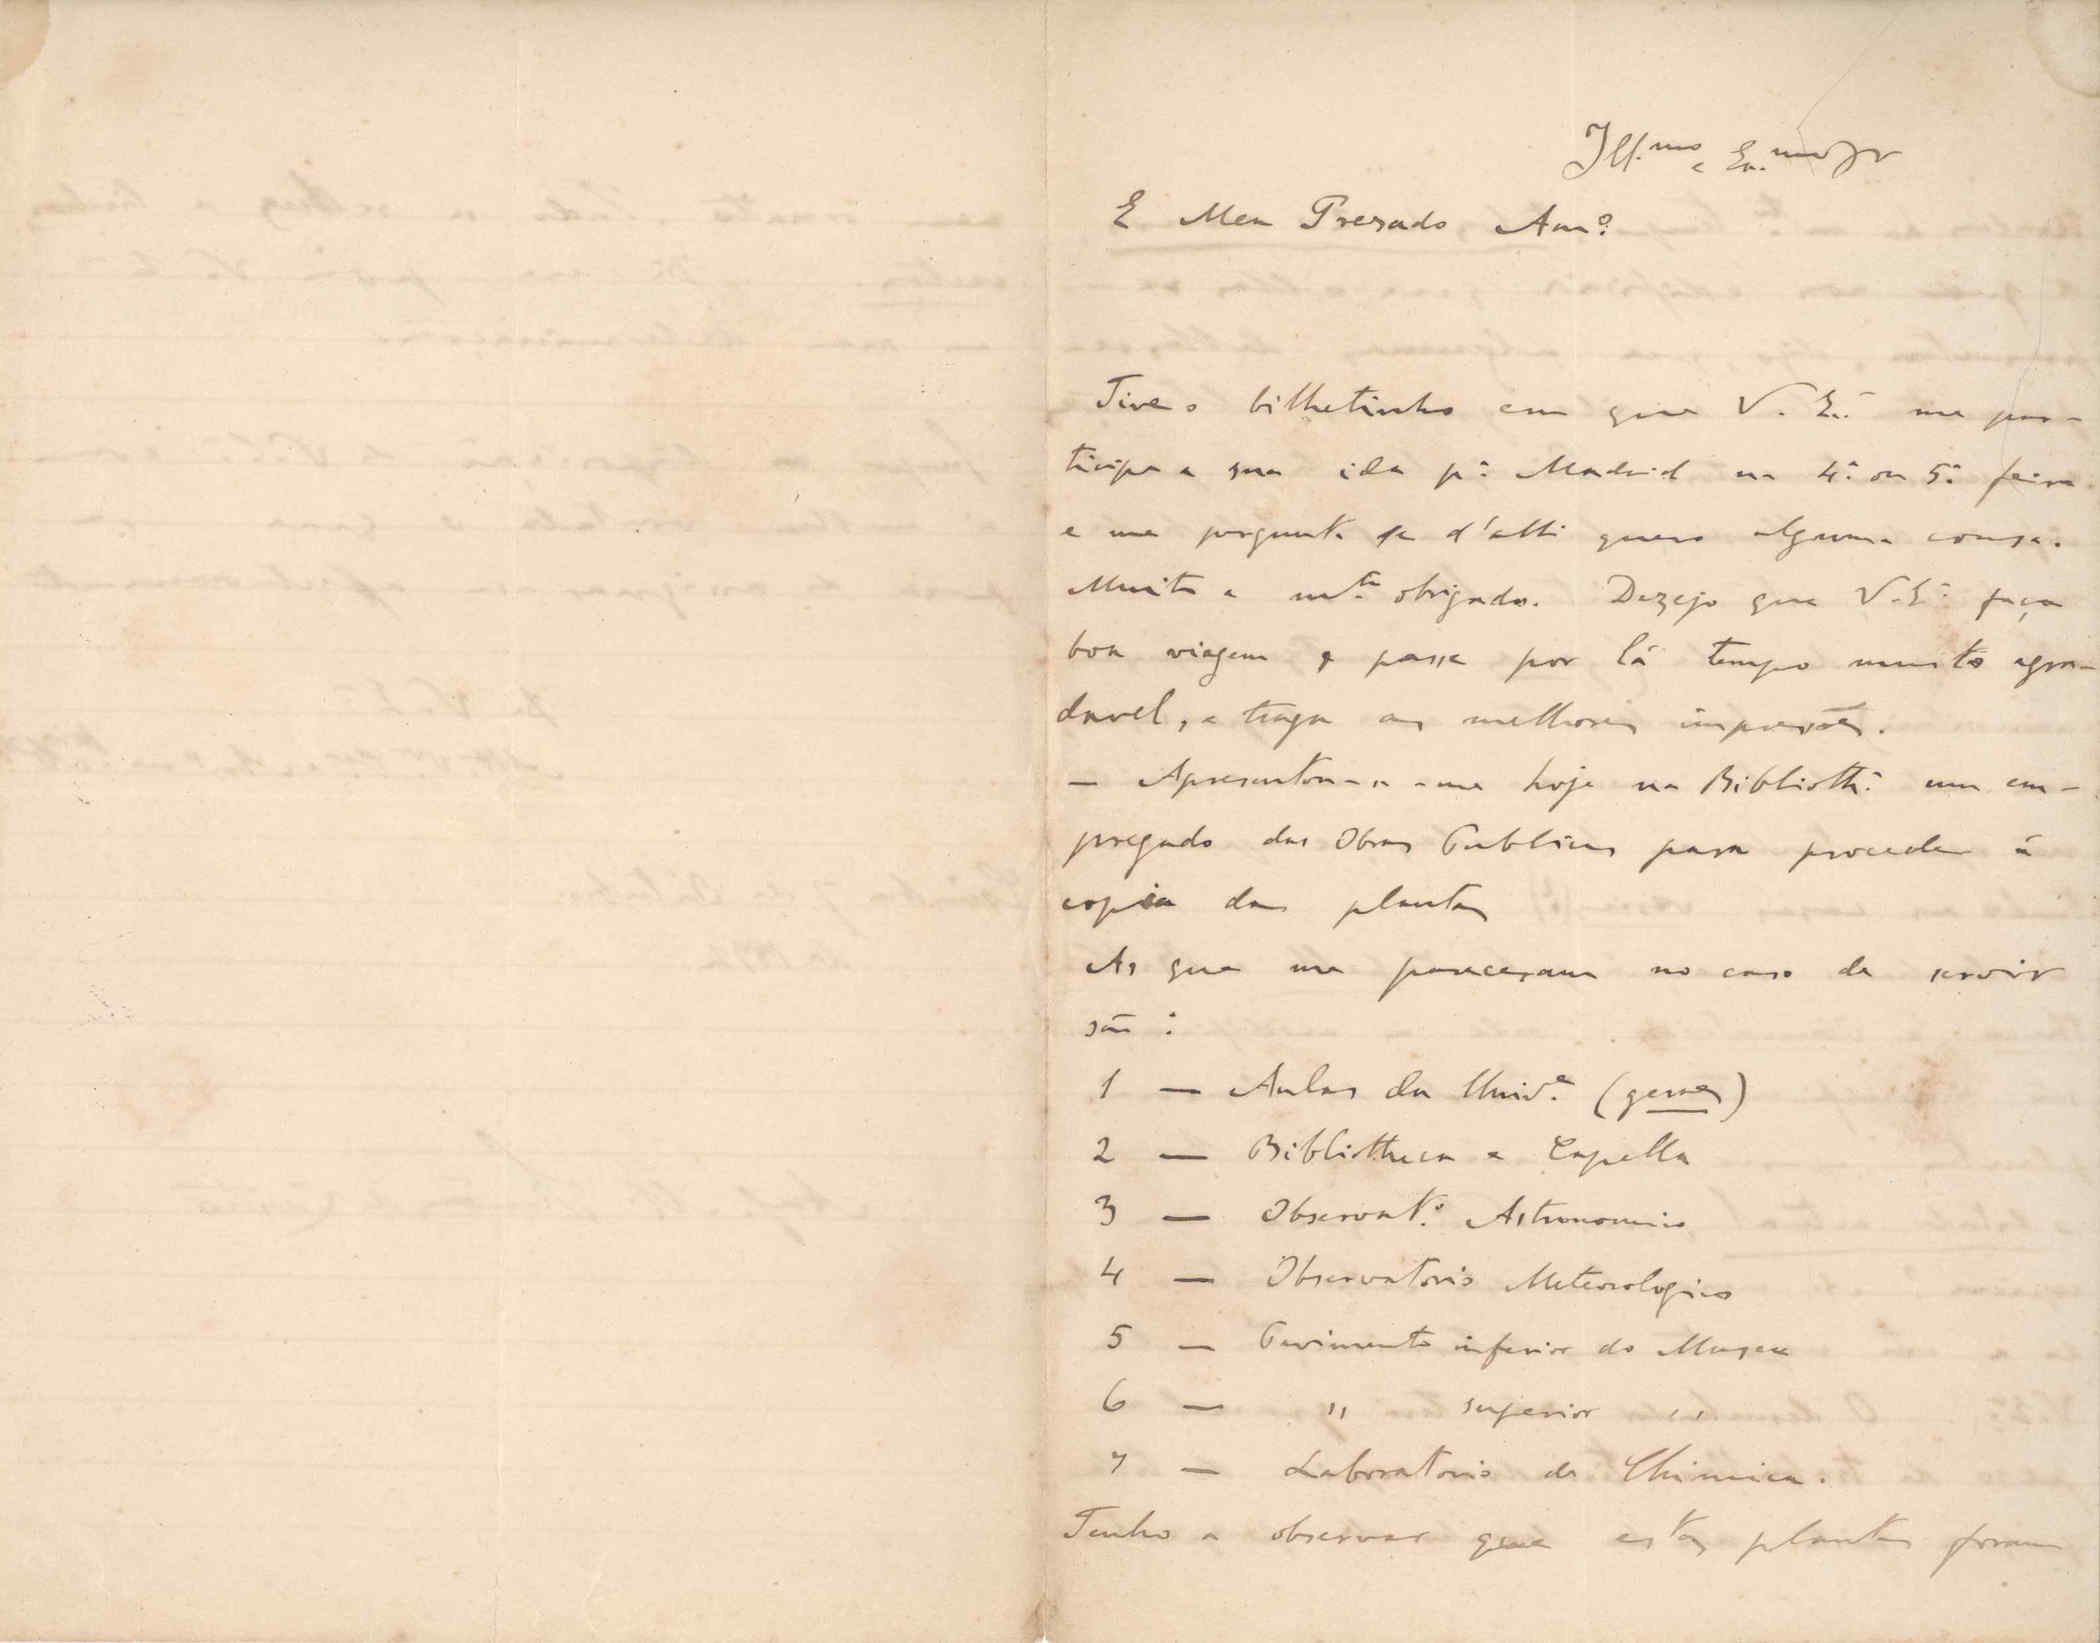 Ill.mo e Ex.mo Sr
E Meu Presado Am.º
Tive o bilhetinho em que V. Ex.ª me par-
ticipa a sua ida p.ª Madrid na 4.ª ou 5.ª feira
e me pergunta se d'alli quero alguma cousa.
Muito e m.to obrigado. Dezejo que V. Ex.ª faça
boa viagem e passe por lá tempo muito agra-
davel, e traga as melhores impressões.
— Apresentou-se-me hoje na Biblioth.ª um em-
pregado das Obras Publicas para proceder á
copia das plantas
As que me pareceram no caso de servir
são:
1 — Aulas da Univ.e (geraes)
2 — Bibliotheca e Capella
3 — Observat.º Astronomico
4 — Observatorio Meteorologico
5 — Pavimento inferior do Museu
6 — " superior "
7 — Laboratorio de Chimica.
Tenho a observar que estas plantas foram